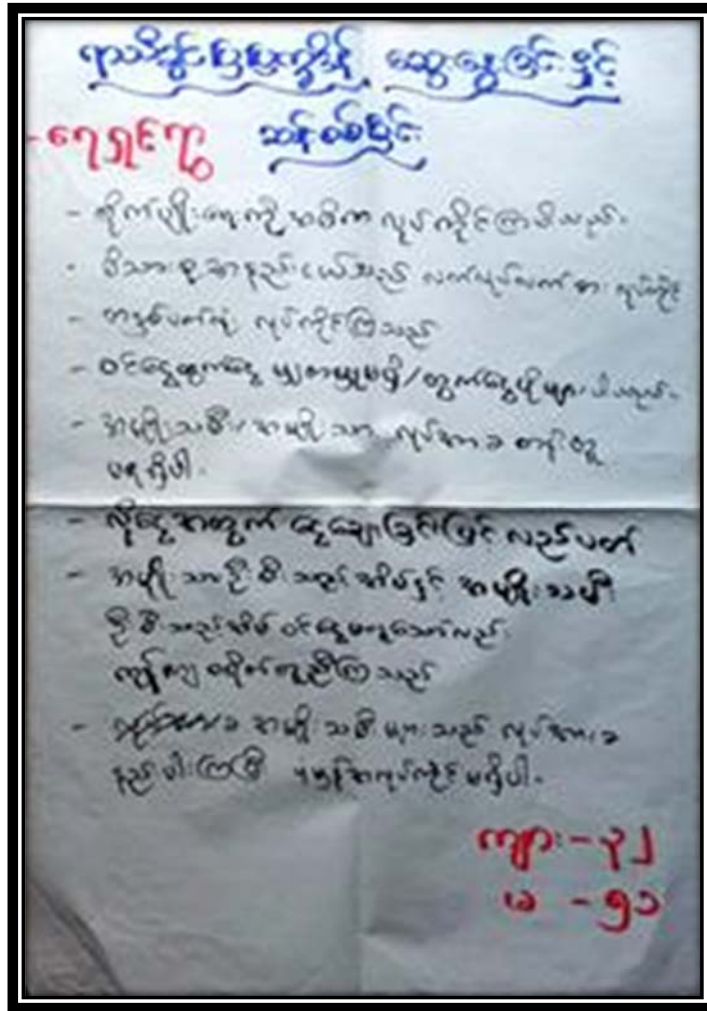 ရာသီခွင်ပြပြက္ခဒိန် ဆွေးနွေးခြင်းနှင့်
- ရေရှင်ကွာ ဆန်းစစ်ခြင်း
- စိုက်ပျိုးရေးကို အဓိက လုပ်ကိုင်ကြပါသည်။
- မိသားစု အနည်းငယ်သည် လက်လုပ်လက်စား လုပ်ကိုင်
- တနှစ်ပတ်လုံး လုပ်ကိုင်ကြသည်
- ဝင်ငွေထွက်ငွေ မျှတမှုမရှိ/ထွက်ငွေပိုများပါသည်။
- အမျိုးသမီး/အမျိုးသား လုပ်အားခ တန်းတူ
မရရှိပါ။
- လိုငွေအတွက် ငွေချေးခြင်းဖြင့် လည်ပတ်
- အမျိုးသားဦးစီးသည့်အိမ်နှင့် အမျိုးသမီး
ဦးစီးသည့်အိမ် ဝင်ငွေမတူသော်လည်း
ကုန်ကျစရိတ်တူညီကြသည်
- အမျိုးသမီးများသည် လုပ်အားခ
နည်းပါးကြပြီး ပုံမှန်အလုပ်ကိုင်မရှိပါ။
ကျား - ၃၂
မ - ၅၁